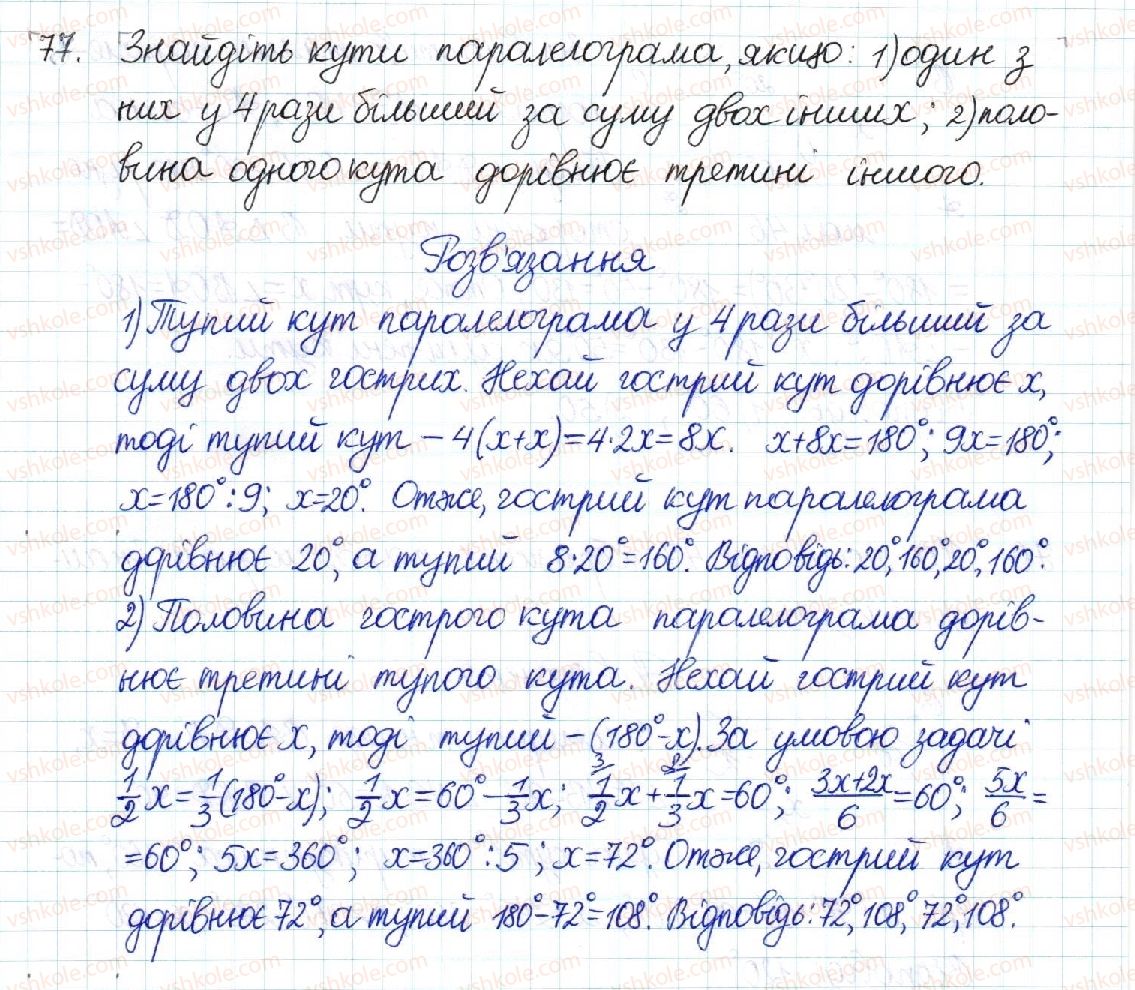 77. Знайдіть кути паралелограма, якщо: 1) один з
них у 4 рази більший за суму двох інших; 2) поло-
вина одного кута дорівнює третині іншого.
Розв'язання
1) Тупий кут паралелограма у 4 рази більший за
суму двох гострих. Нехай гострий кут дорівнює x,
тоді тупий кут – 4(x+x)=4·2x=8x. x+8x=180°; 9x=180°;
x=180°:9; x=20°. Отже, гострий кут паралелограма
дорівнює 20°, а тупий 8·20°=160°. Відповідь: 20°, 160°, 20°, 160°.
2) Половина гострого кута паралелограма дорів-
нює третині тупого кута. Нехай гострий кут
дорівнює x, тоді тупий – (180°-x). За умовою задачі
1/2 x = 1/3 (180°-x); 1/2 x = 60° - 1/3 x; 1/2 x + 1/3 x = 60°; (3x+2x)/6 = 60°; 5x/6 =
=60°; 5x=360°; x=360°:5; x=72°. Отже, гострий кут
дорівнює 72°, а тупий 180°-72°=108°. Відповідь: 72°, 108°, 72°, 108°.